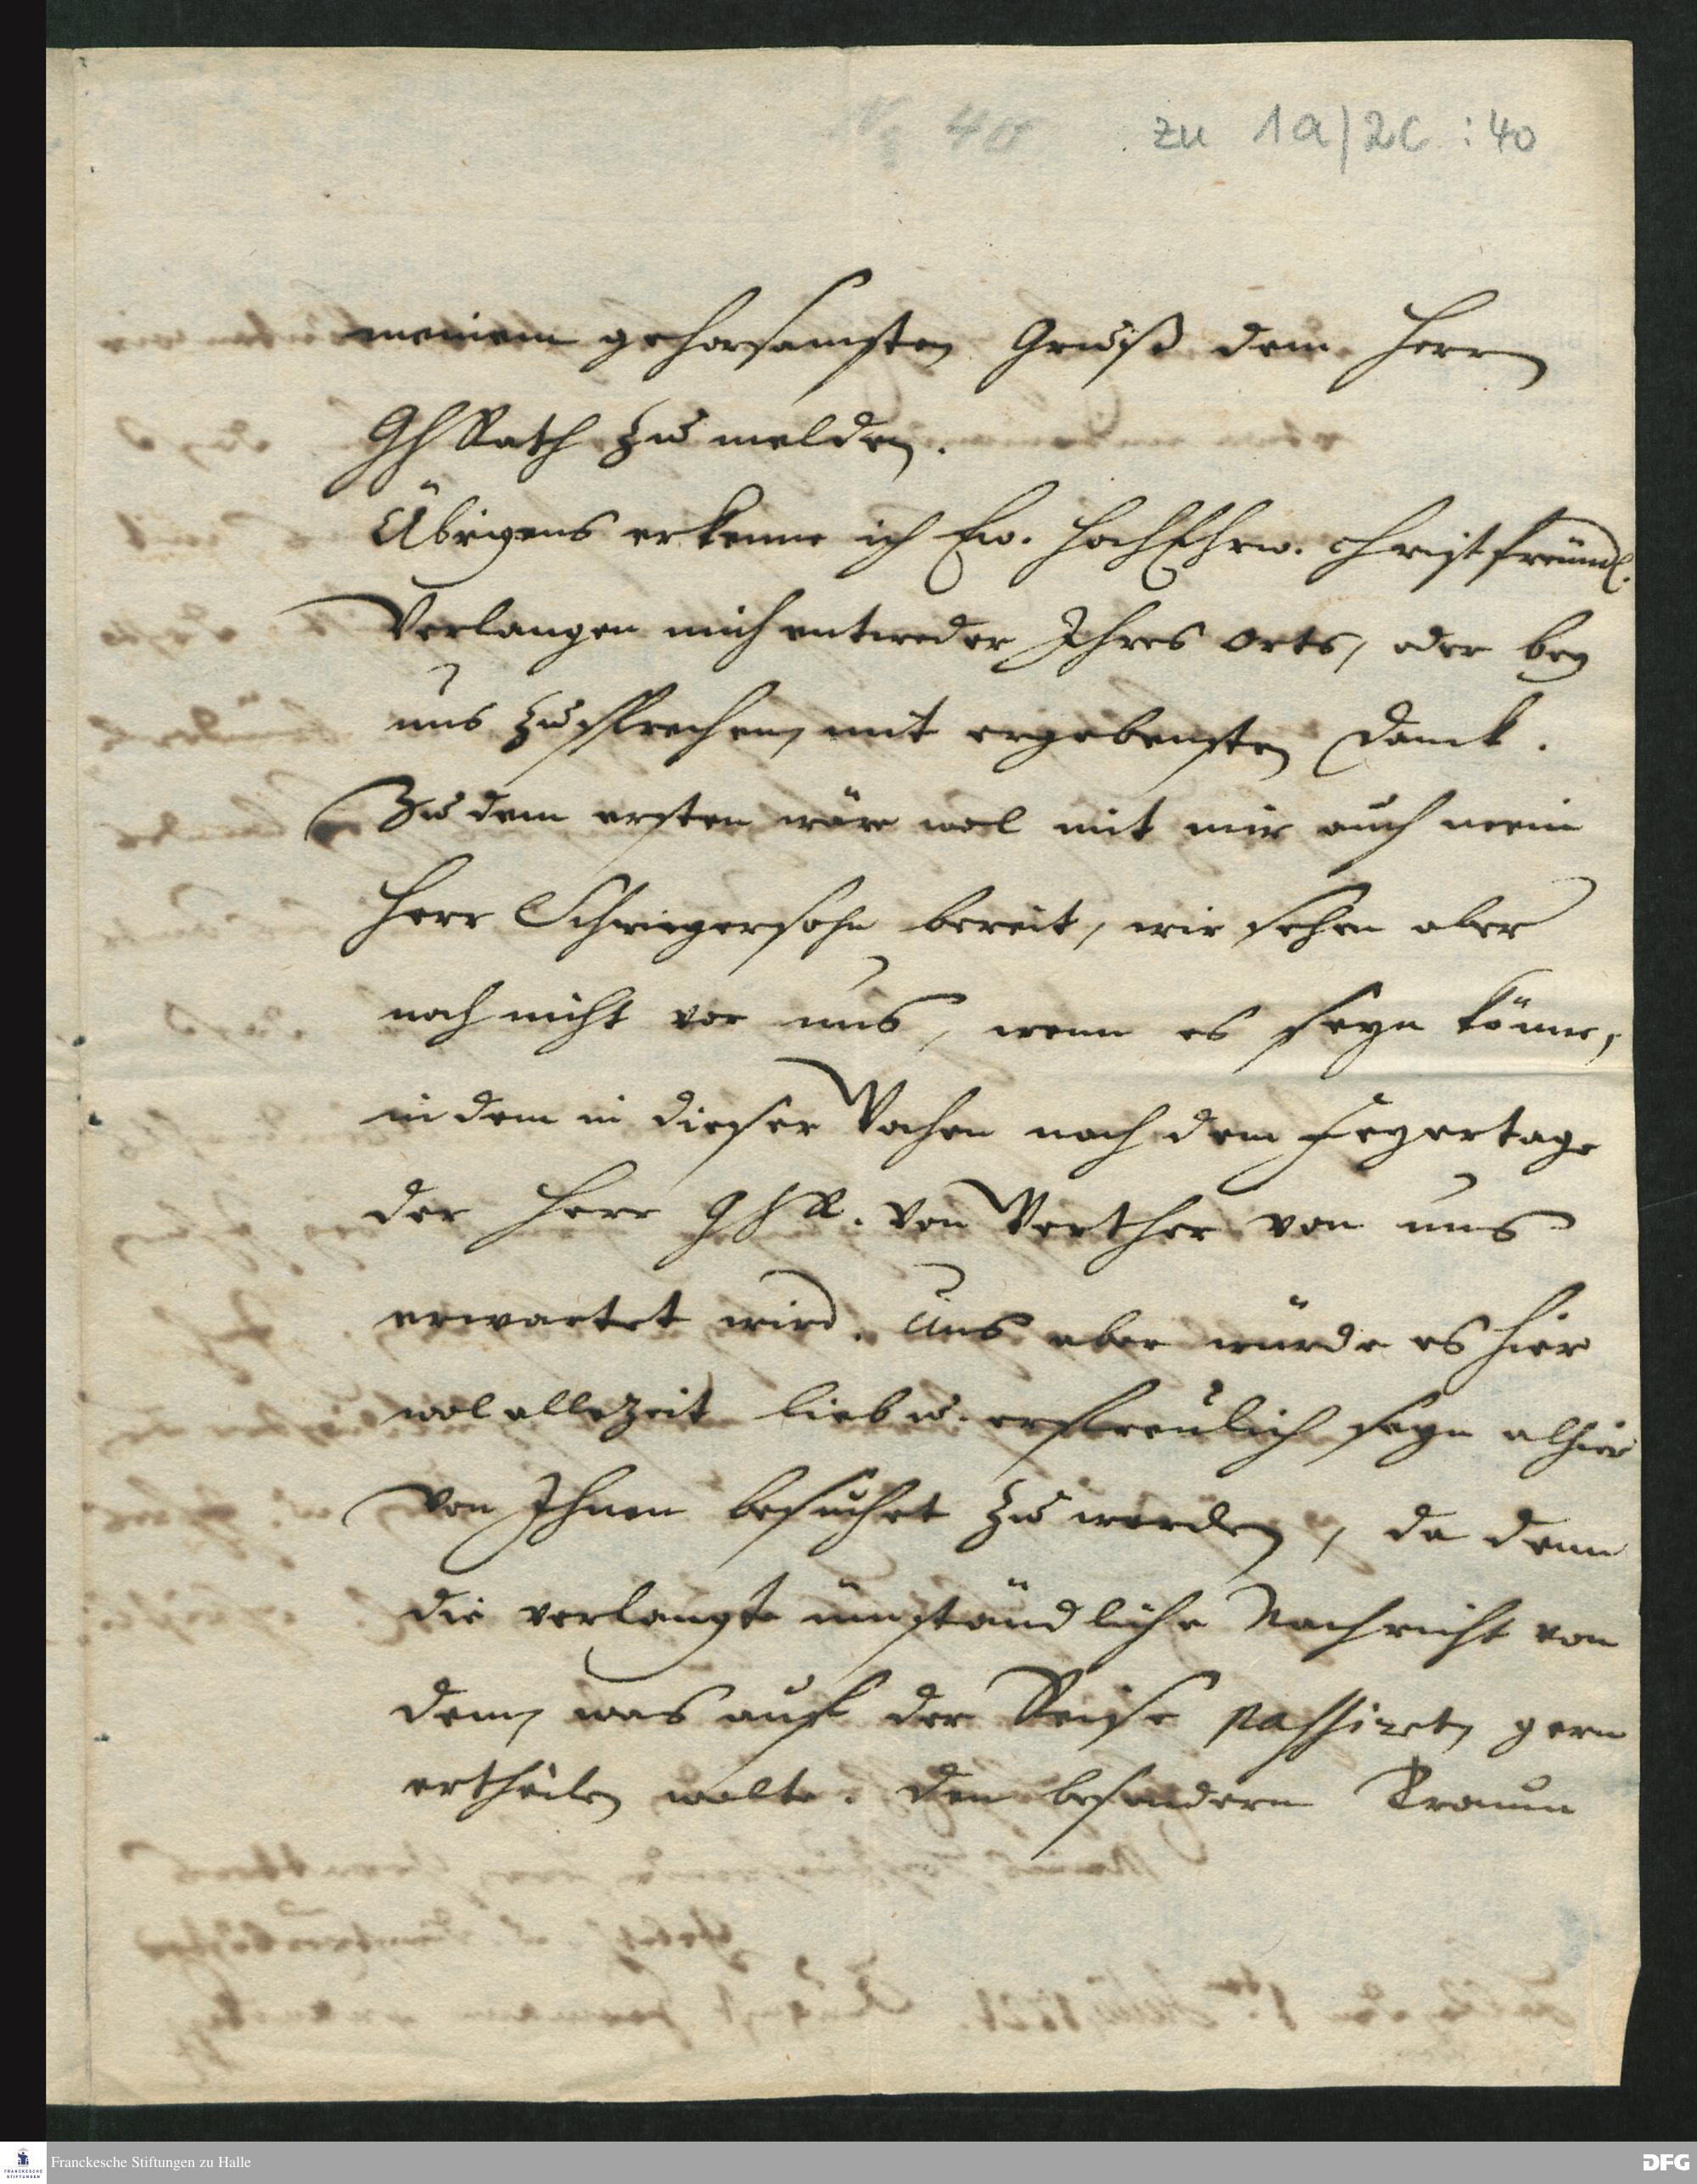 No 40 zu 1a/2c :40
meinem gehorsamsten Gruß dem Herrn
GhRath zu melden.
Übrigens erkenne ich Ew. HochEhrw. christfreündl.
Verlangen mich entweder Ihres Orts, oder bey
uns zusprechen, mit ergebensten Danck.
Zu dem ersten wäre wol mit mir auch mein
Herr Schwiegersohn bereit, wir sehen aber
noch nicht vor uns, wenn es seyn könne,
in dem in dieser Wochen nach dem Feyertage
der Herr GhR. von Werther von uns
erwartet wird. Uns aber würde es hier
wol allezeit lieb u. erfreulich seyn alhier
von Ihnen besuchet zu werden, da denn
die verlangte ümständliche Nachricht von
dem, was auf der Reise passiret, gern
ertheilen wolte. Den besondern Traum
Franckesche Stiftungen zu Halle
FRANCKESCHE STIFTUNGEN
DFG